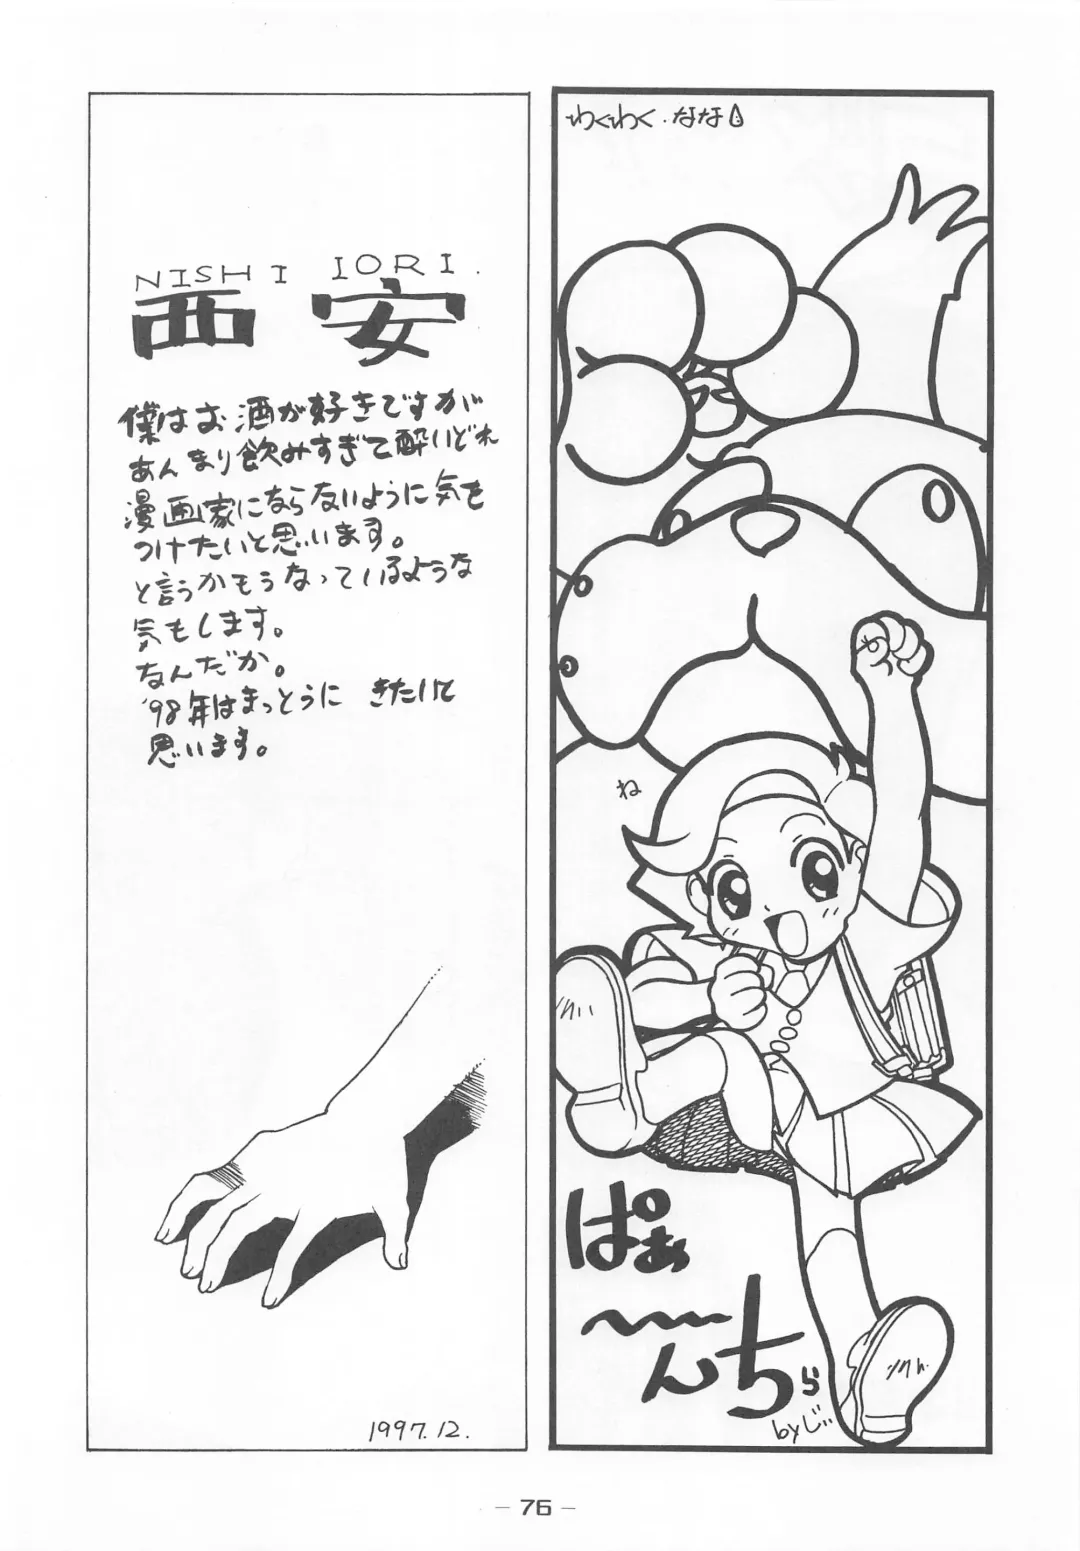 NISHI IORI.
西 安
僕はお酒が好きですが
あんまり飲みすぎて酔いどれ
漫画家にならないように気を
つけたいと思います。
と言うかもうなっているような
気もします。
なんだか。
'98年はまっとうに きたいと
思います。
1997.12.
わくわく.なな
ね
ぱぁ
〜んち
ら
byじぃ
- 76 -